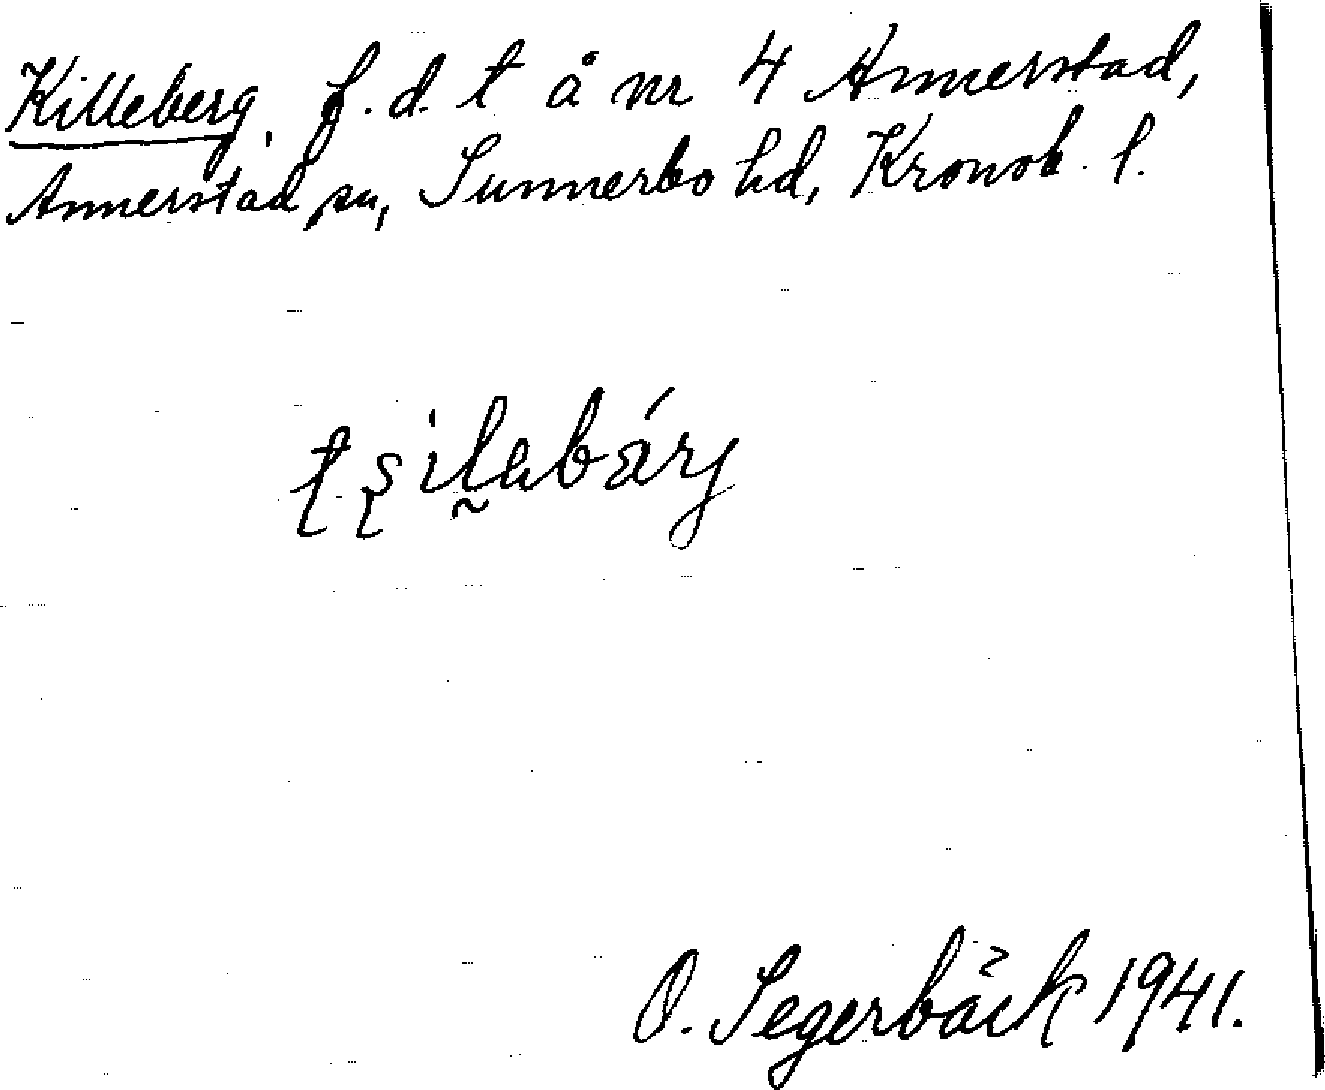 Killeberg, f.d. t å nr 4 Annerstad,
Annerstad sn, Sunnerbo hd, Kronob. l.
O. Segerbäck 1941.